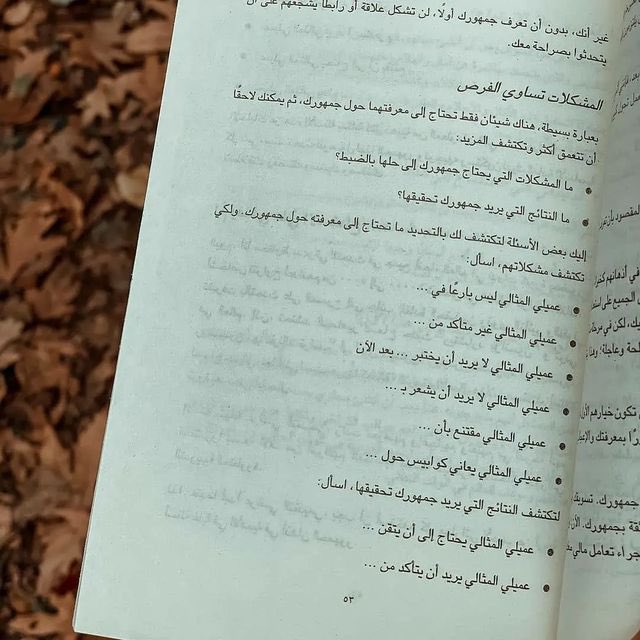 غير أنك، بدون أن تعرف جمهورك أولًا، لن تشكل علاقة أو رابطًا يشجعهم على أن
يتحدثوا بصراحة معك.
المشكلات تساوي الفرص
بعبارة بسيطة، هناك شيئان فقط تحتاج إلى معرفتهما حول جمهورك، ثم يمكنك لاحقًا
أن تتعمق أكثر وتكتشف المزيد:
• ما المشكلات التي يحتاج جمهورك إلى حلها بالضبط؟
• ما النتائج التي يريد جمهورك تحقيقها؟
إليك بعض الأسئلة لتكتشف لك بالتحديد ما تحتاج إلى معرفته حول جمهورك. ولكي
تكتشف مشكلاتهم، اسأل:
• عميلي المثالي ليس بارعًا في ...
• عميلي المثالي غير متأكد من ...
• عميلي المثالي لا يريد أن يختبر ... بعد الآن
• عميلي المثالي لا يريد أن يشعر بـ ...
• عميلي المثالي مقتنع بأن ...
• عميلي المثالي يعاني كوابيس حول ...
لتكتشف النتائج التي يريد جمهورك تحقيقها، اسأل:
• عميلي المثالي يحتاج إلى أن يتقن ...
• عميلي المثالي يريد أن يتأكد من ...
٥٣